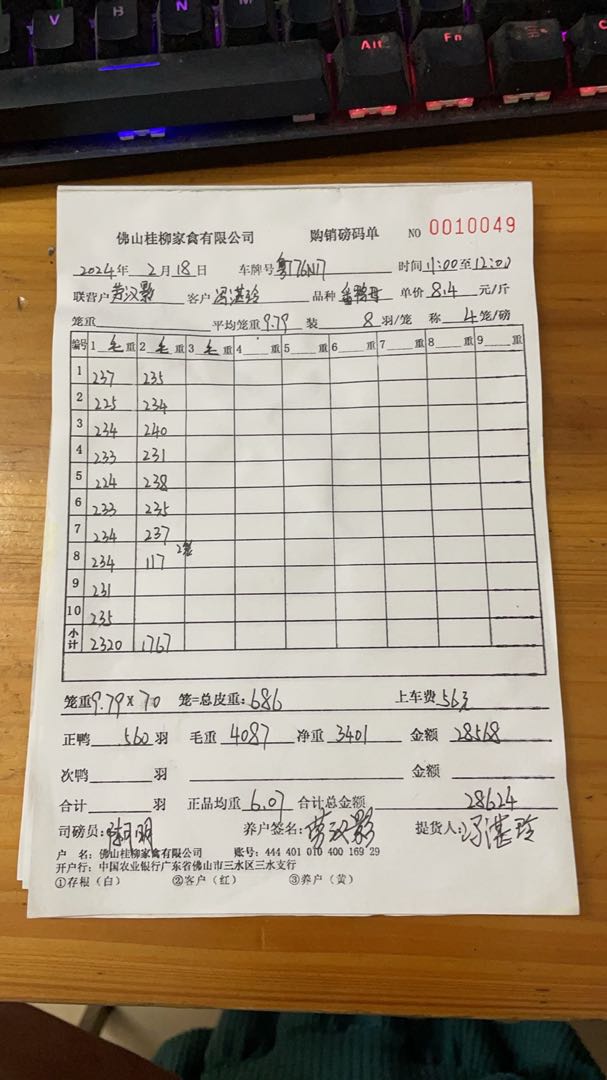 V B N M
Alt Fn
佛山桂柳家禽有限公司 购销磅码单 NO 0010049
2024年 2月18日 车牌号 粤T76N17 时间 11:00至12:00
联营户 劳汉影 客户 冯湛玲 品种 番鸭母 单价 8.4 元/斤
笼重 平均笼重 9.79 装 8 羽/笼 称 4 笼/磅
编号 1 毛 重 2 毛 重 3 毛 重 4 重 5 重 6 重 7 重 8 重 9 重
1 237 235
2 225 234
3 234 240
4 233 231
5 224 238
6 233 235
7 234 237
8 234 117 2笼
9 231
10 235
小计 2320 1767
笼重 9.79 x 70 笼=总皮重: 686 上车费 56元
正鸭 560 羽 毛重 4087 净重 3401 金额 28568
次鸭 羽 金额
合计 羽 正品均重 6.07 合计总金额 28624
司磅员: 养户签名: 劳汉影 提货人: 冯湛玲
户 名: 佛山桂柳家禽有限公司 账号: 444 401 010 400 169 29
开户行: 中国农业银行广东省佛山市三水区三水支行
①存根（白） ②客户（红） ③养户（黄）